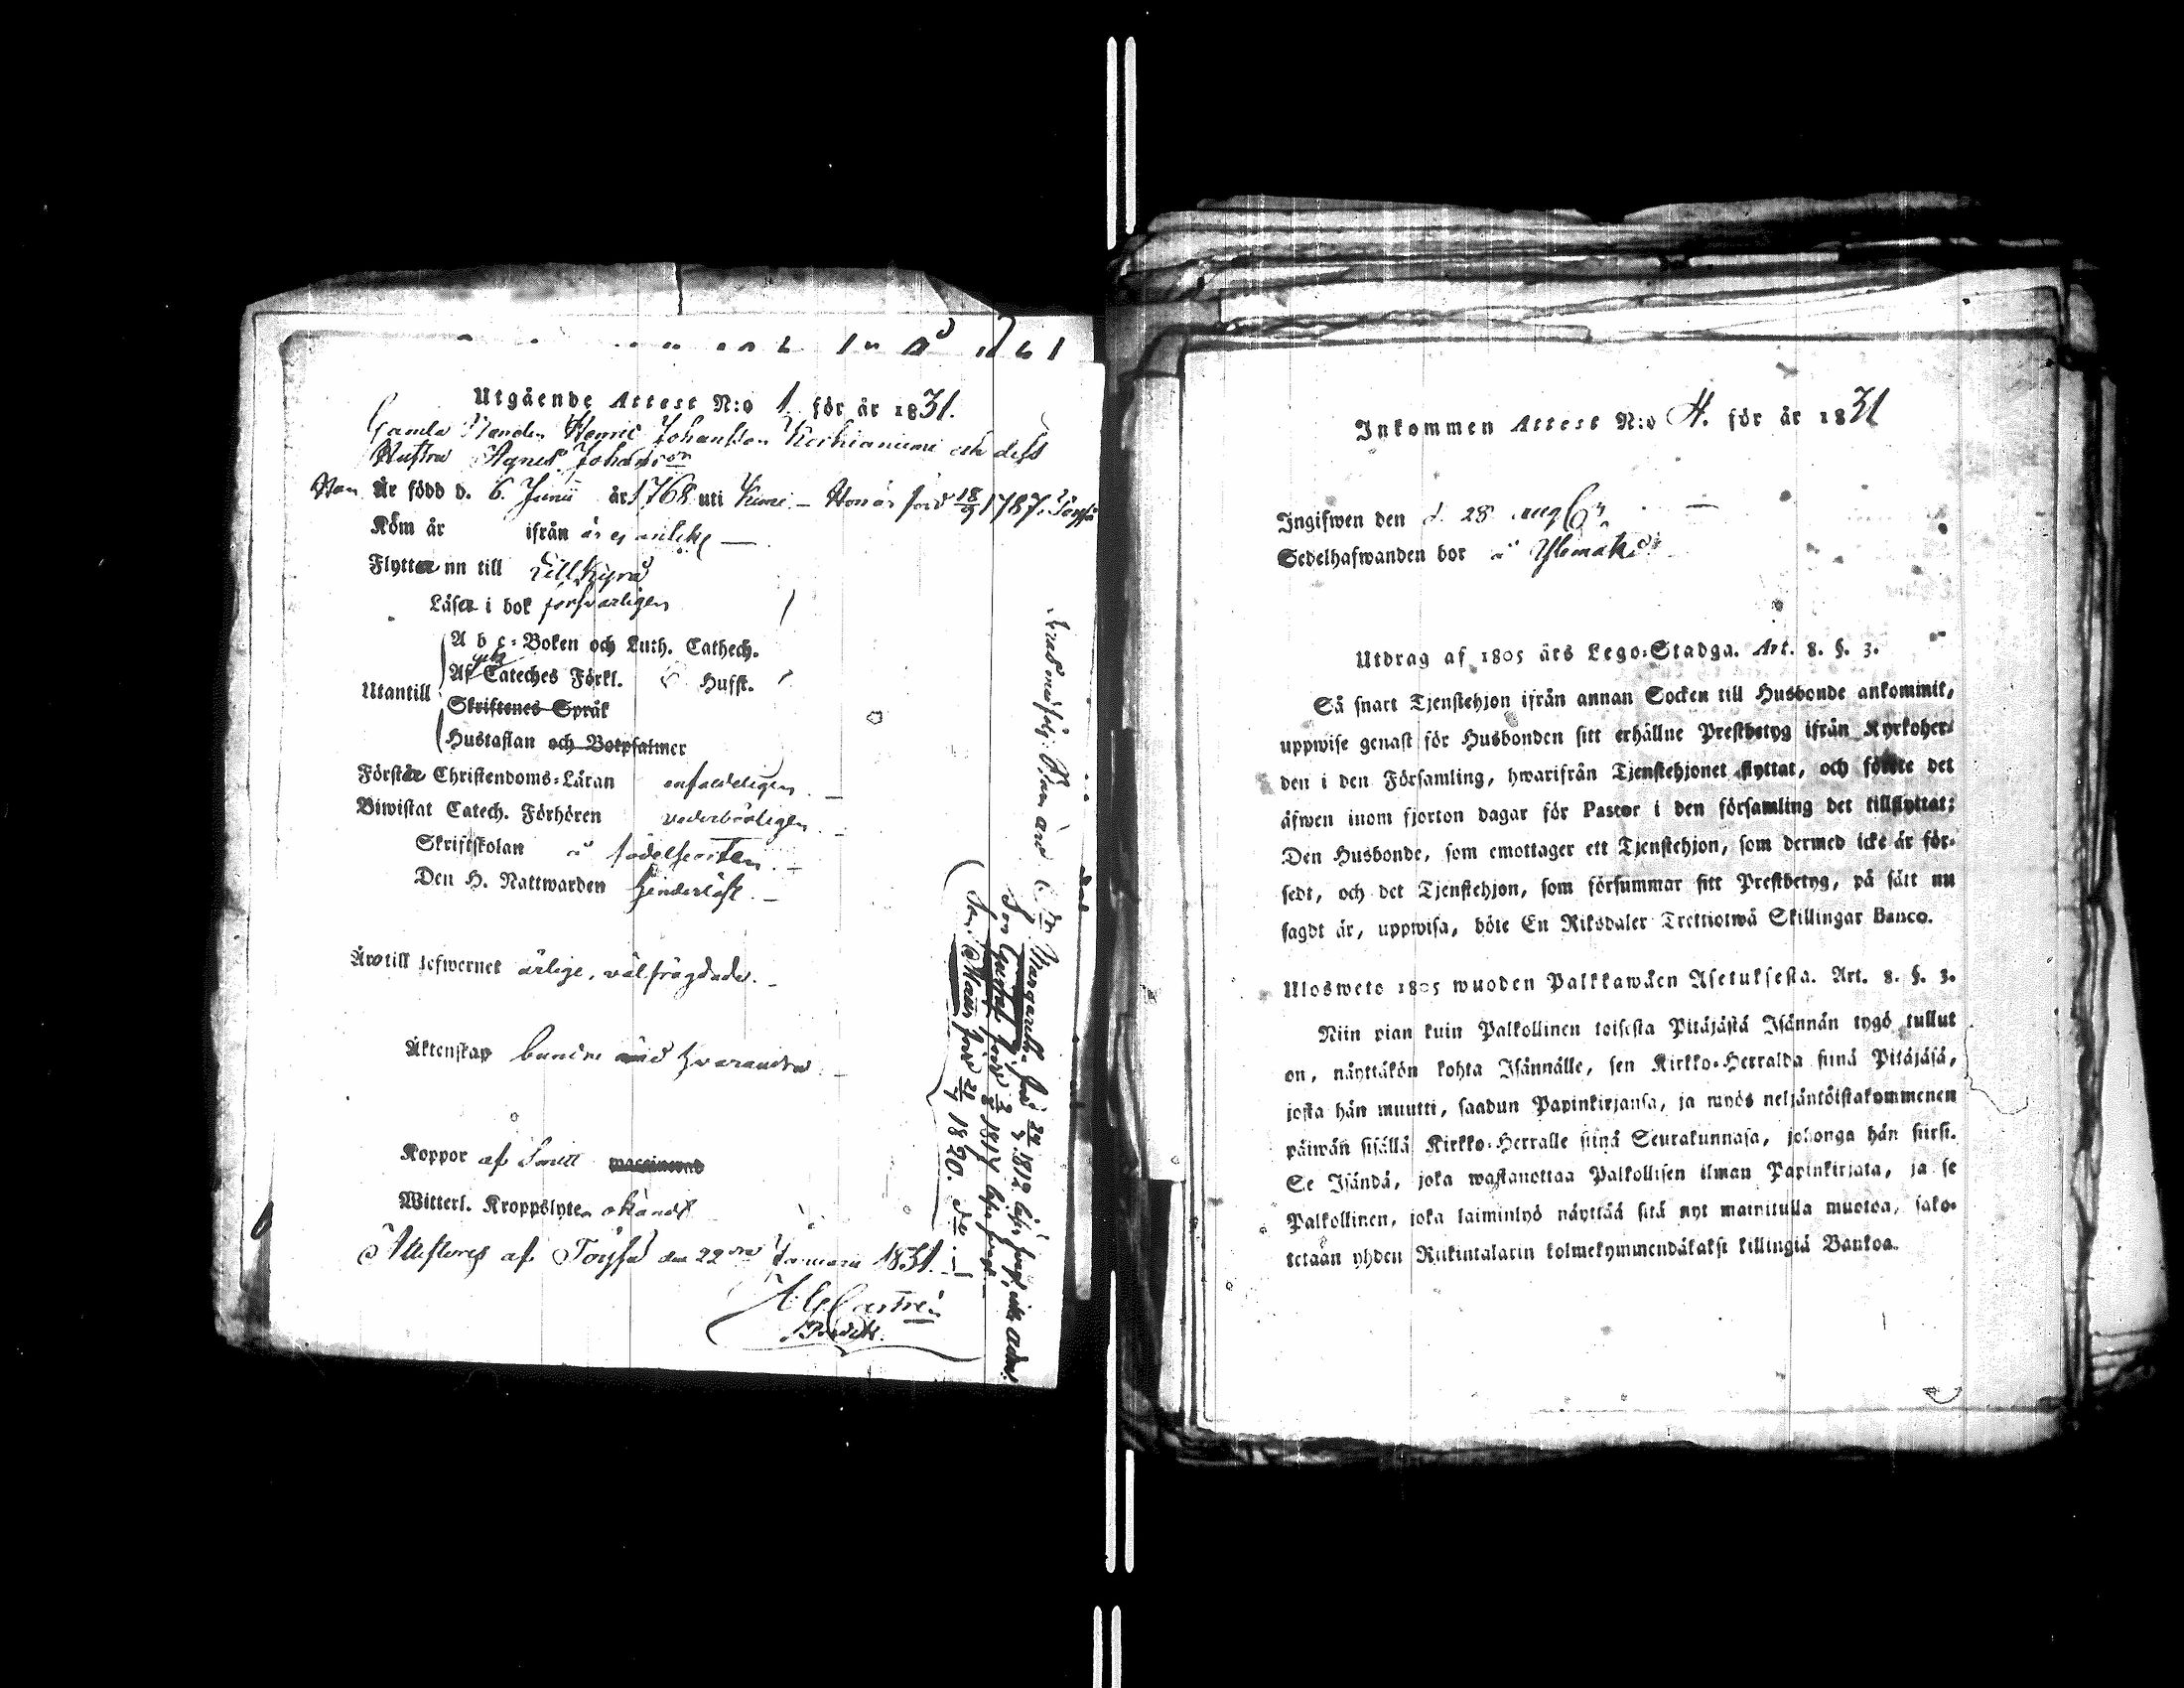 Utgående Attest N:o 1 för år 1831.
Gamla Henric Johansson och dess
Hustru Agnes Johansd:r
Han Är född d. 6. Junii år 1768 uti – Hon är född 18/9 1787 i Töysä
Kom år ifrån
Flyttar nu till Lillkyro
Läser i bok försvarligen
A b c-Boken och Luth. Cathech.
Utantill
Af Cateches Förkl. Husst.
Skriftenes Språk
Hustaflan och Botpsalmer
Förstår Christendoms-Läran enfaldeligen
Biwistat Catech. Förhören vederbörligen
Skriftskolan å födelseorten
Den H. Nattwarden hinderlöst
Äro till lefwernet ärlige, välfrägdade.
Äktenskap bundne med hvarandra
Koppor af
Witterl. Kroppslyten okändt
Attesteres af Töysä den 22 Januarii 1831.
Castrén
Barn äro
Margaretha född 24/3 1812
Son Gustaf född 1817
Son Matts född 21/7 1820. d:o
Inkommen Attest N:o 4. för år 1831
Ingifwen den d. 28 aug
Sedelhafwanden bor å
Utdrag af 1805 års Lego-Stadga. Art. 8. §. 3.
Så snart Tjenstehjon ifrån annan Socken till Husbonde ankommit,
uppwise genast för Husbonden sitt erhållne Prestbetyg ifrån Kyrkoher-
den i den Församling, hwarifrån Tjenstehjonet flyttat, och förete det
äfwen inom fjorton dagar för Pastor i den församling det tillflyttat;
Den Husbonde, som emottager ett Tjenstehjon, som dermed icke är för-
sedt, och det Tjenstehjon, som försummar sitt Prestbetyg, på sätt nu
sagdt är, uppwisa, böte En Riksdaler Trettiotwå Skillingar Banco.
Ulosweto 1805 wuoden Palkkawäen Asetuksesta. Art. 8. §. 3.
Niin pian kuin Palkollinen toisesta Pitäjästä Isännän tygö tullut
on, näyttäkön kohta Isännälle, sen Kirkko-Herralda siinä Pitäjäsä,
josta hän muutti, saadun Papinkirjansa, ja myös neljäntöistakymmenen
päiwän sisällä Kirkko-Herralle siinä Seurakunnasa, johonga hän siirsi.
Se Isändä, joka wastanottaa Palkollisen ilman Papinkirjata, ja se
Palkollinen, joka laiminlyö näyttää sitä nyt mainitulla muotoa, sako-
tetaan yhden Riikintalarin kolmekymmendäkaksi killingiä Bankoa.